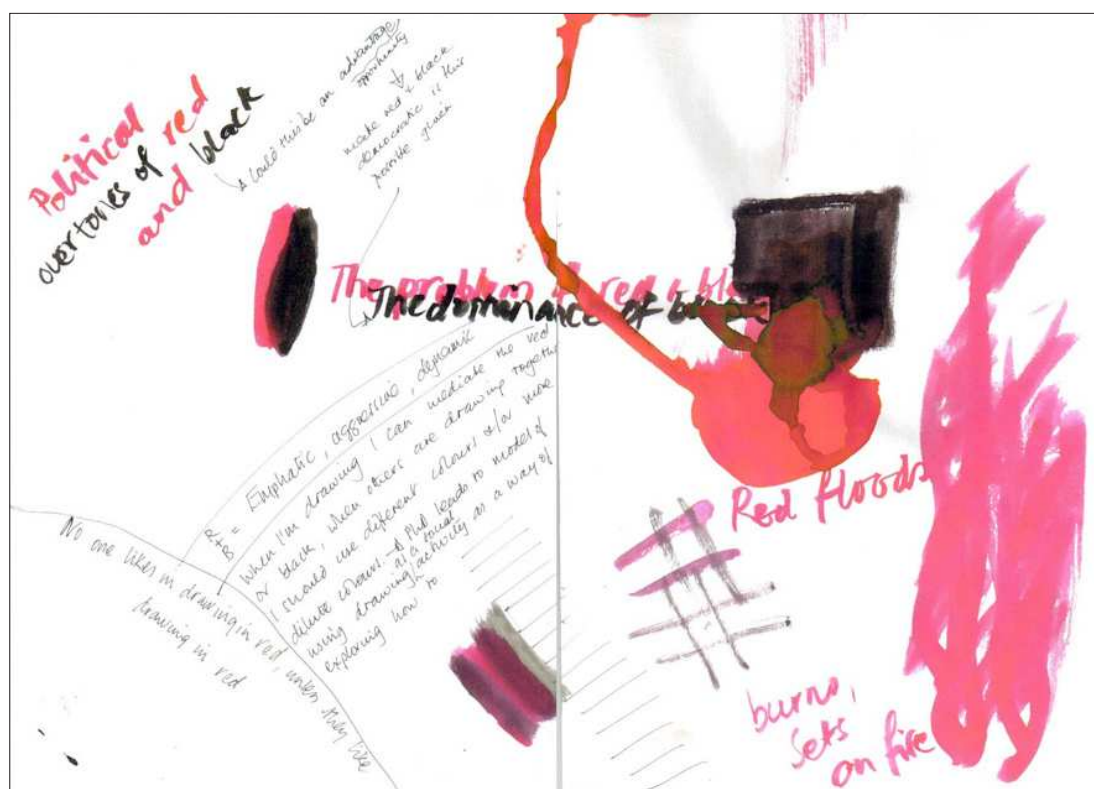 Political
overtones of red
and black
could this be an advantage
opportunity
make red & black
democratic is this
possible given
The problem of red & bla
The dominance of
Emphatic, aggressive, dynamic
When I'm drawing I can mediate the red
or black, when others are drawing together
I should use different colours &/or more
dilute colours. → PhD leads to model of
using drawing as a social activity as a way of
exploring how to
No one likes in drawing in red, unless they like
drawing in red
Red floods
burns,
sets
on fire